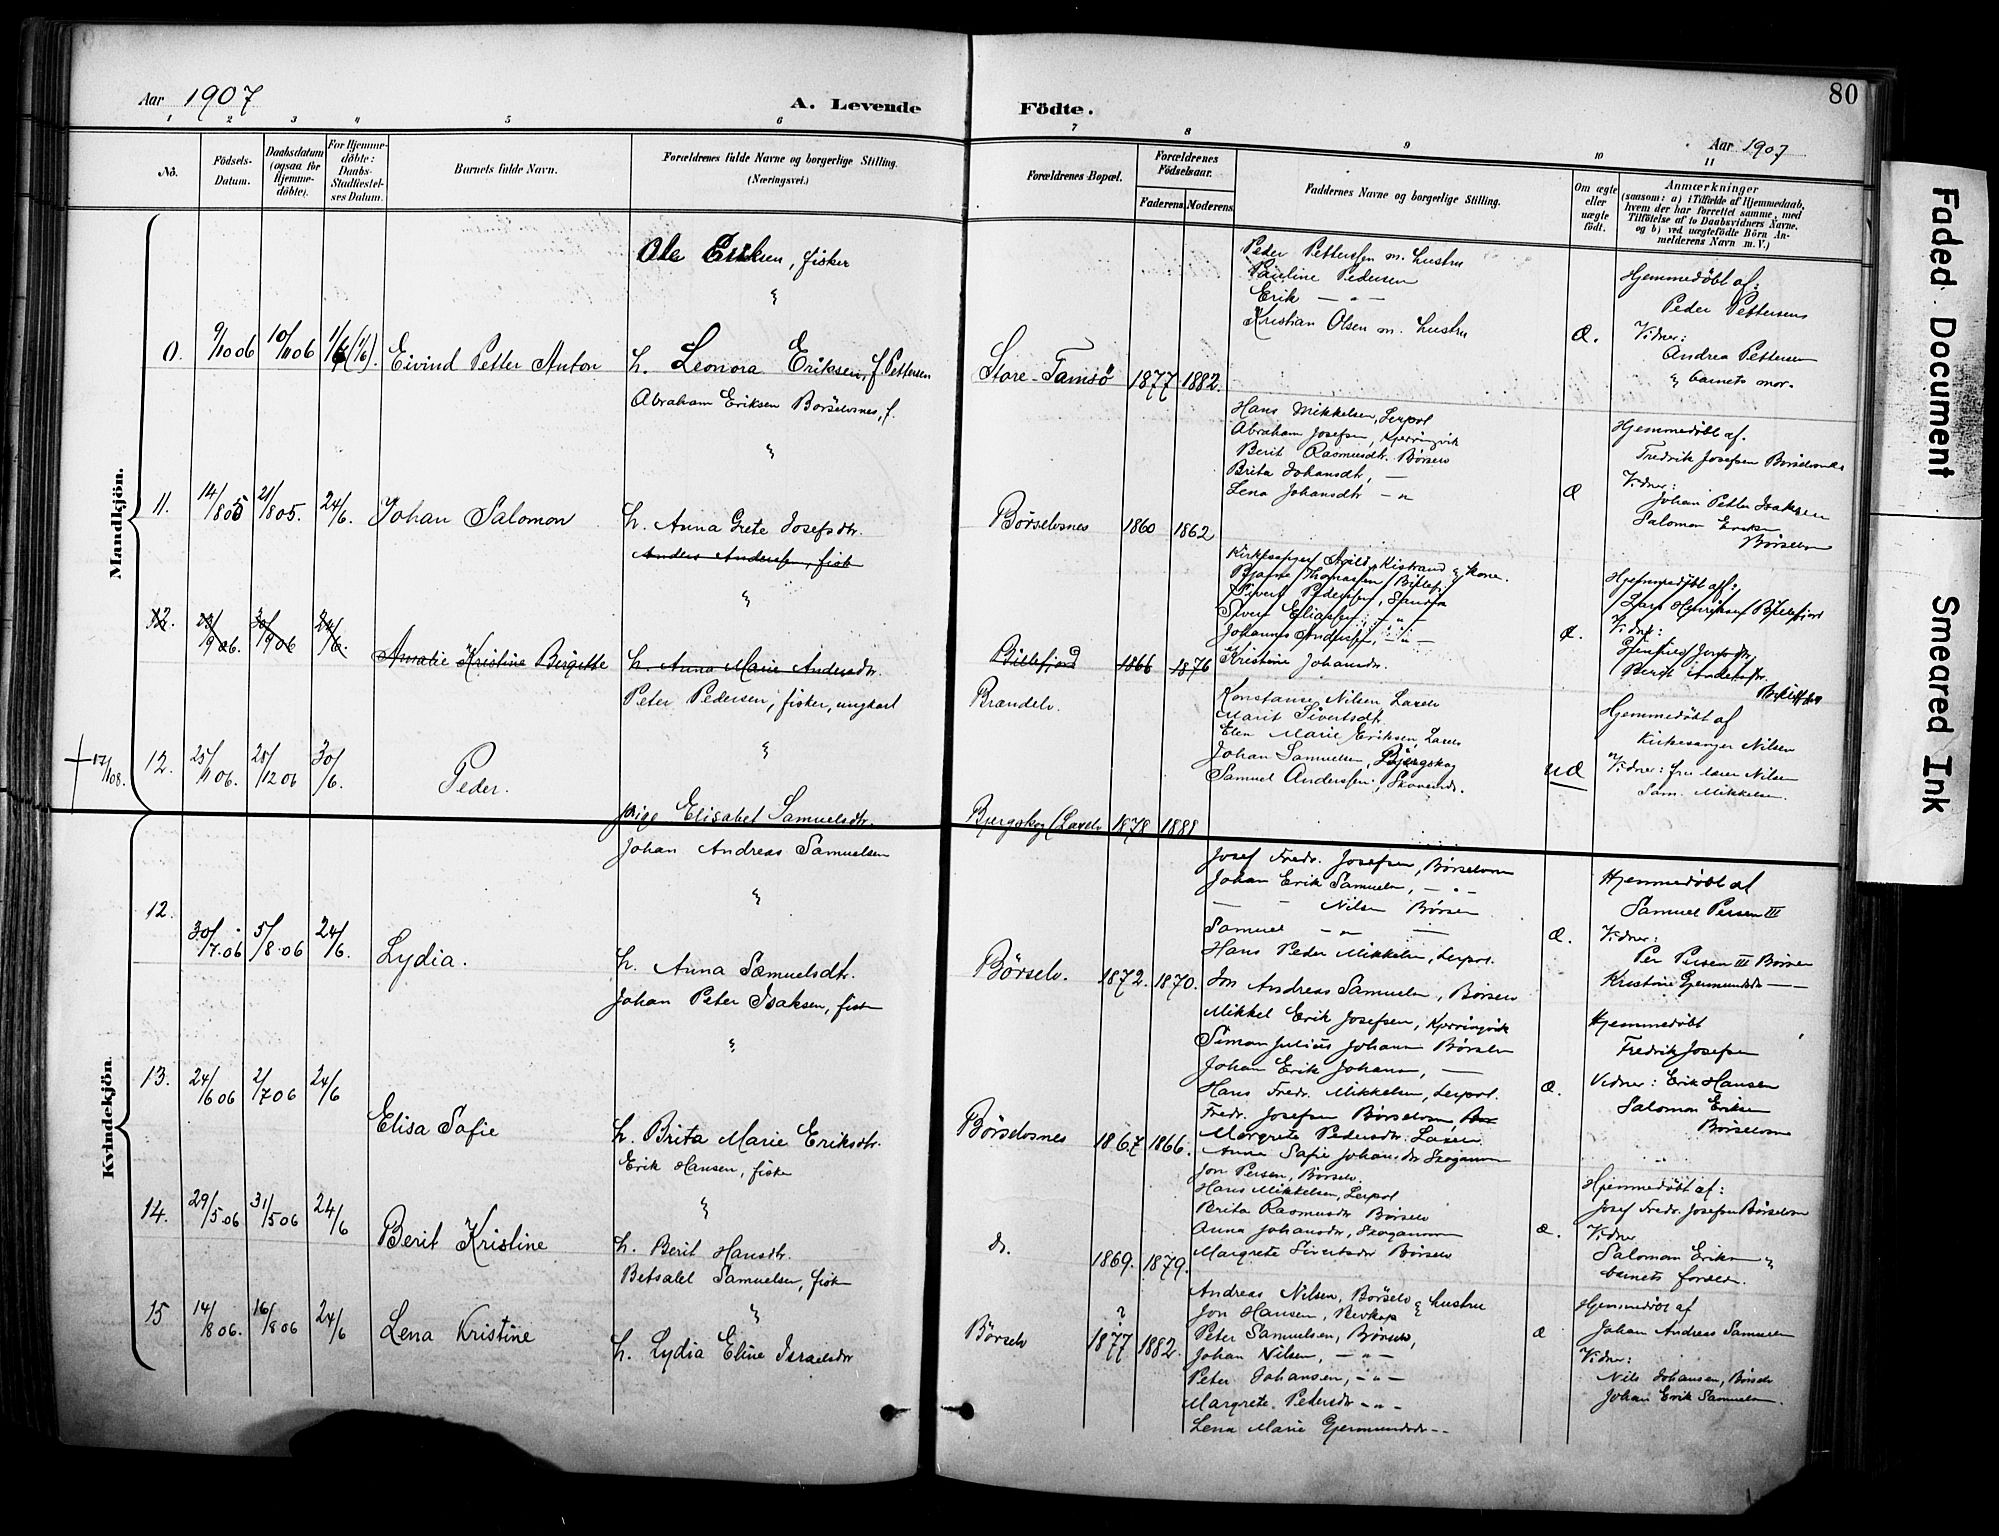 80
Aar 1907
A. Levende
Födte.
Aar 1907
1
2
3
4
5
6
7
8
9
10
11
No.
Födsels-
Datum.
Daabsdatum
(ogsaa for
Hjemme-
döbte).
For Hjemme-
döbte:
Daabs-
Stadfæstel-
ses Datum.
Barnets fulde Navn.
Forældrenes fulde Navne og borgerlige Stilling.
(Næringsvei.)
Forældrenes Bopæl.
Forældrenes
Födselsaar.
Faderens
Moderens
Faddernes Navne og borgerlige Stilling.
Om ægte
eller
uægte
födt.
Anmærkninger
(saasom: a) i Tilfælde af Hjemmedaab,
hvem der har forrettet samme, med
Tilföielse af to Daabsvidners Navne,
og b) ved uægtefödte Börn An-
melderens Navn m. V.)
Mandkjön.
Ole Eriksen, fisker
Peder Pettersen m. hustru
Pauline Pedersen
Erik — " —
Kristian Olsen m. hustru
Hjemmedøbt af:
Peder Pettersen
Vidner:
Andrea Pettersen
barnets mor.
0. 9/10 06 10/10 06 Eivind Petter Anton
h. Leonora Eriksen, f Pettersen
Store-Tamsö 1877 1882. æ.
Abraham Eriksen Borselvnes, f.
Hans Mikkelsen, Leirpol
Abraham Josefsen, Kjerringvik
Berit Rasmusdtr. Börselv
Brita Johansdtr, —
Lena Johansdtr — " —
Hjemmedøbt af.
Fredrik Josefsen Börselvnes
Vidner:
Johan Petter Isaksen
Salomon Eriksen
Börselvn
11. 14/8 05 21/8 05. 24/6. Johan Salomon
h. Anna Grete Josefsdtr.
Börselvnes 1860 1862 æ
Anders Andersen, fisk
Kristine Johansdr.
Hjemmedøbt af:
Vidner:
12. 23/9 06. 30/9 06 24/6. Amalie Kristine Birgitte
h. Anna Marie Andersdtr.
Billefjord 1866 1876 æ.
Peter Pedersen, fisker, ungkarl
Brændelv
Konstanse Nilsen Laxelv
Marit Sivertsdt.
Elen Marie Eriksen, Laxelv
Johan Samuelsen, Bjergskog
Samuel Anderssen, Skovend.
Hjemmedøbt af
Kirkesanger Nilsen
Vidner: fru lærer Nilsen
Sam. Mikkelsen.
† 17/1 08. 12. 25/11 06. 28/12 06 30/6. Peder.
pige Elisabet Samuelsdtr.
Bjergskog (Laxelv 1878 1888 uæ
Kvindekjön.
Johan Andreas Samuelsen
Josef Fredr. Josefsen, Börselvnes
Johan Erik Samuelsn, — " —
— — Nilsen Börsen
Samuel — " —
Hans Peder Mikkelsen, Leirpol.
Hjemmedøbt af
Samuel Persen III
Vidner:
Per Persen III Börsen
Kristine Gjermundsdr — —
12. 30/7.06 5/8.06 24/6. Lydia.
h. Anna Samuelsdtr.
Börselv. 1872. 1870. æ.
Johan Peter Isaksen, fisk
Jon Andreas Samuelsn, Börselv
Mikkel Erik Josefsen, Kjerringvik
Simon Julius Johansn Börselv
Johan Erik Johansn, —
Hans Fredr. Mikkelsen, Leirpol.
Fredr. Josefsen Börselvnes,
Margrete Pedersdtr. Laxen.
Anna Safie Johansdtr
Hjemmedøbt
Fredrik Josefsen
Vidner: Erik Hansen
Salomon Eriksen
Börselvnes
13. 24/6 06 2/7 06 24/6 Elisa Safie
h. Brita Marie Eriksdtr.
Börselvnes 1867 1866. æ.
Erik Hansen, fisker
Jon Persen, Börselv.
Hans Mikkelsen, Leirpol
Brita Rasmusdtr Börselv
Anna Johansdtr,
Margrete Sivertsdtr Börselv
Hjemmedøbt af:
Josef Fredr. Josefsen Börselvn
Vidner
Salomon Eriksn
barnets foreldr.
14. 29/5 06 31/5 06 24/6 Berit Kristine
h. Berit Hansdtr.
do. 1869. 1879. æ.
Betsalel Samuelsen, fisk
Andreas Nilsen, Börselv & hustru
Jon Hansen,
Peter Samuelsen, Börselv,
Johan Nilsen, — " —
Peter Johansen, — " —
Margrete Pedersdtr — " —
Lena Marie Gjermundsdr — —
Hjemmedøbt af
Johan Andreas Samuelsen
Vidner:
Nils Johansen, Börselv
Johan Erik Samuelsn.
15 14/8 06. 16/8 06 24/6 Lena Kristine
h. Lydia Eline Israelsdtr
Börselv ? 1877 1882. æ
Faded Document
Smeared Ink